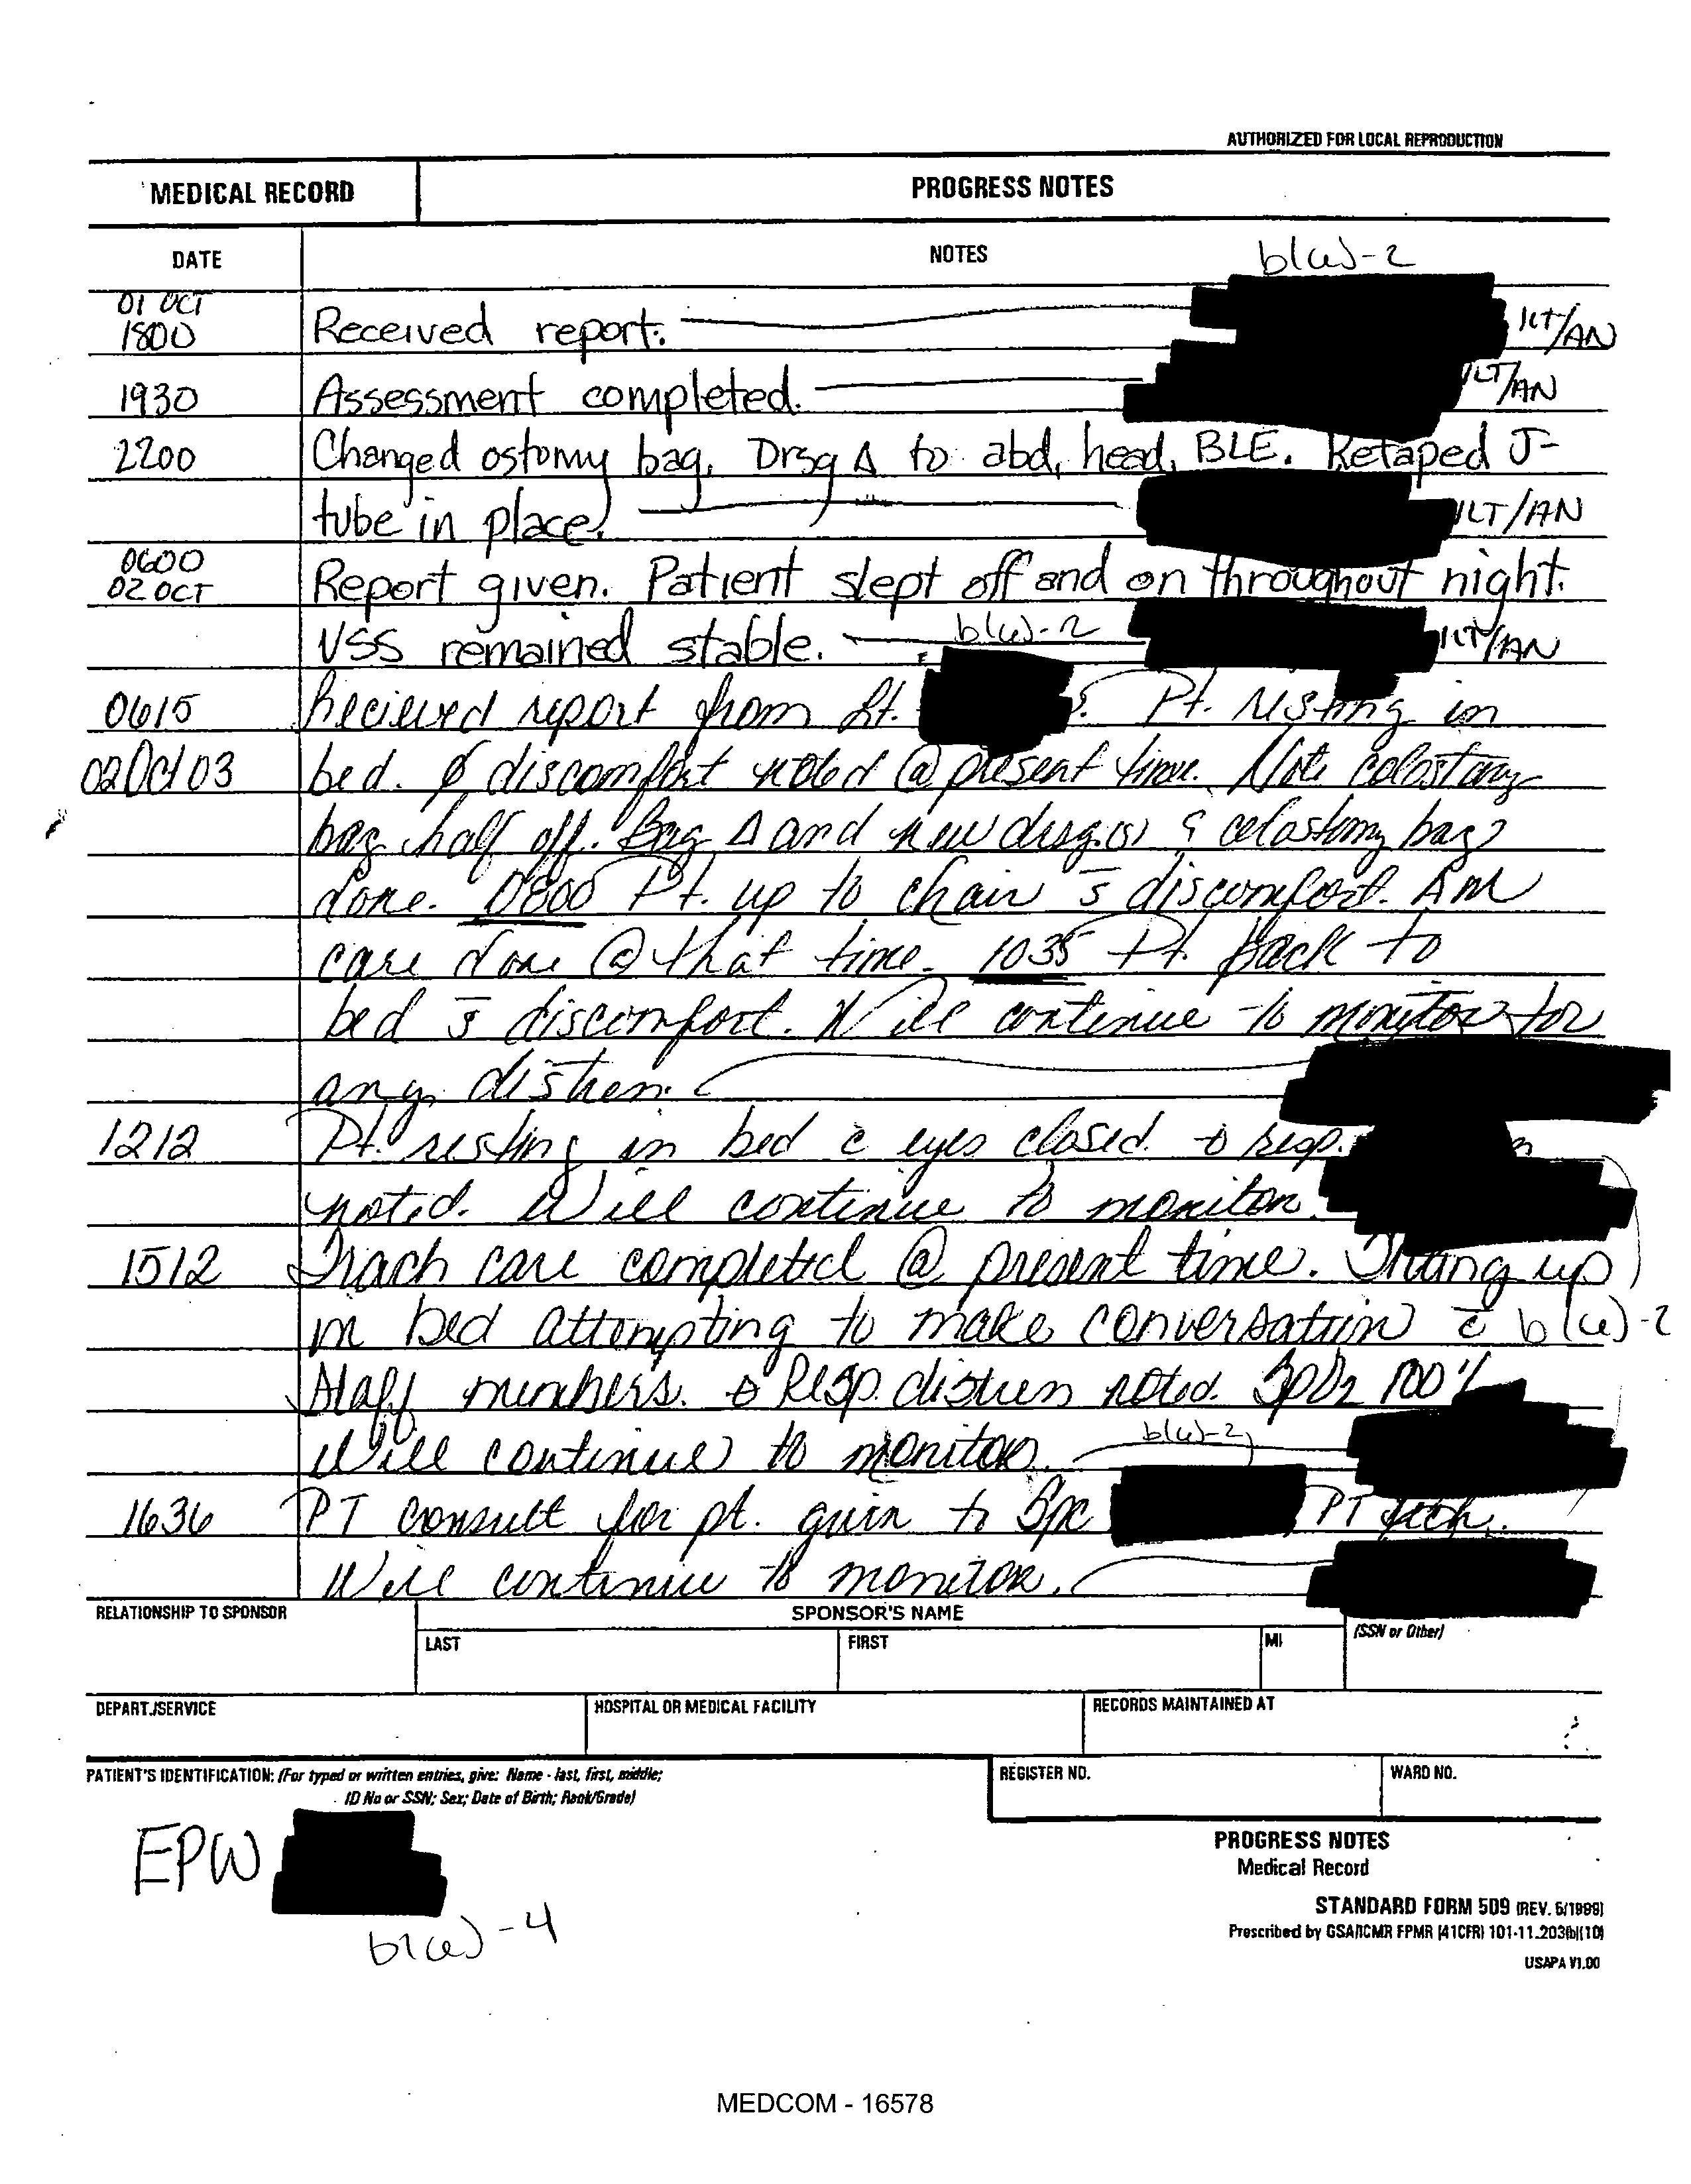 AUTHORIZED FOR LOCAL REPRODUCTION
MEDICAL RECORD
PROGRESS NOTES
DATE
NOTES
b(6)-2
01 OCT
1800
Received report. 1LT/AN
1930 Assessment completed. 1LT/AN
2200 Changed ostomy bag, Drsg Δ to abd, head, BLE. Retaped J-
tube in place. 1LT/AN
0600
02 OCT
Report given. Patient slept off and on throughout night.
VSS remained stable. b(6)-2 1LT/AN
0615 Recieved report from Lt. Pt. resting in
02Oct03 bed. ∅ discomfort noted @ present time. Note colostomy
bag half off. Bag Δ and new drsg.(s) & colostomy bag
done. 0800 Pt. up to chair s̄ discomfort. AM
care done @ that time. 1035 Pt. back to
bed s̄ discomfort. Will continue to monitor for
any distress.
1212 Pt. resting in bed c̄ eyes closed. ∅ resp.
noted. Will continue to monitor.
1512 Trach care completed @ present time. Sitting up
in bed attempting to make conversation c̄ b(6)-2
Staff members. ∅ Resp. distress noted. SpO2 100%
Will continue to monitor. b(6)-2
1636 PT consult for pt. given to Spc PT tech.
Will continue to monitor.
RELATIONSHIP TO SPONSOR
SPONSOR'S NAME
LAST
FIRST
MI
(SSN or Other)
DEPART./SERVICE
HOSPITAL OR MEDICAL FACILITY
RECORDS MAINTAINED AT
PATIENT'S IDENTIFICATION: (For typed or written entries, give: Name - last, first, middle;
ID No or SSN; Sex; Date of Birth; Rank/Grade)
REGISTER NO.
WARD NO.
EPW
b(6)-4
PROGRESS NOTES
Medical Record
STANDARD FORM 509 (REV. 5/1999)
Prescribed by GSA/ICMR FPMR (41CFR) 101-11.203(b)(10)
USAPA V1.00
MEDCOM - 16578